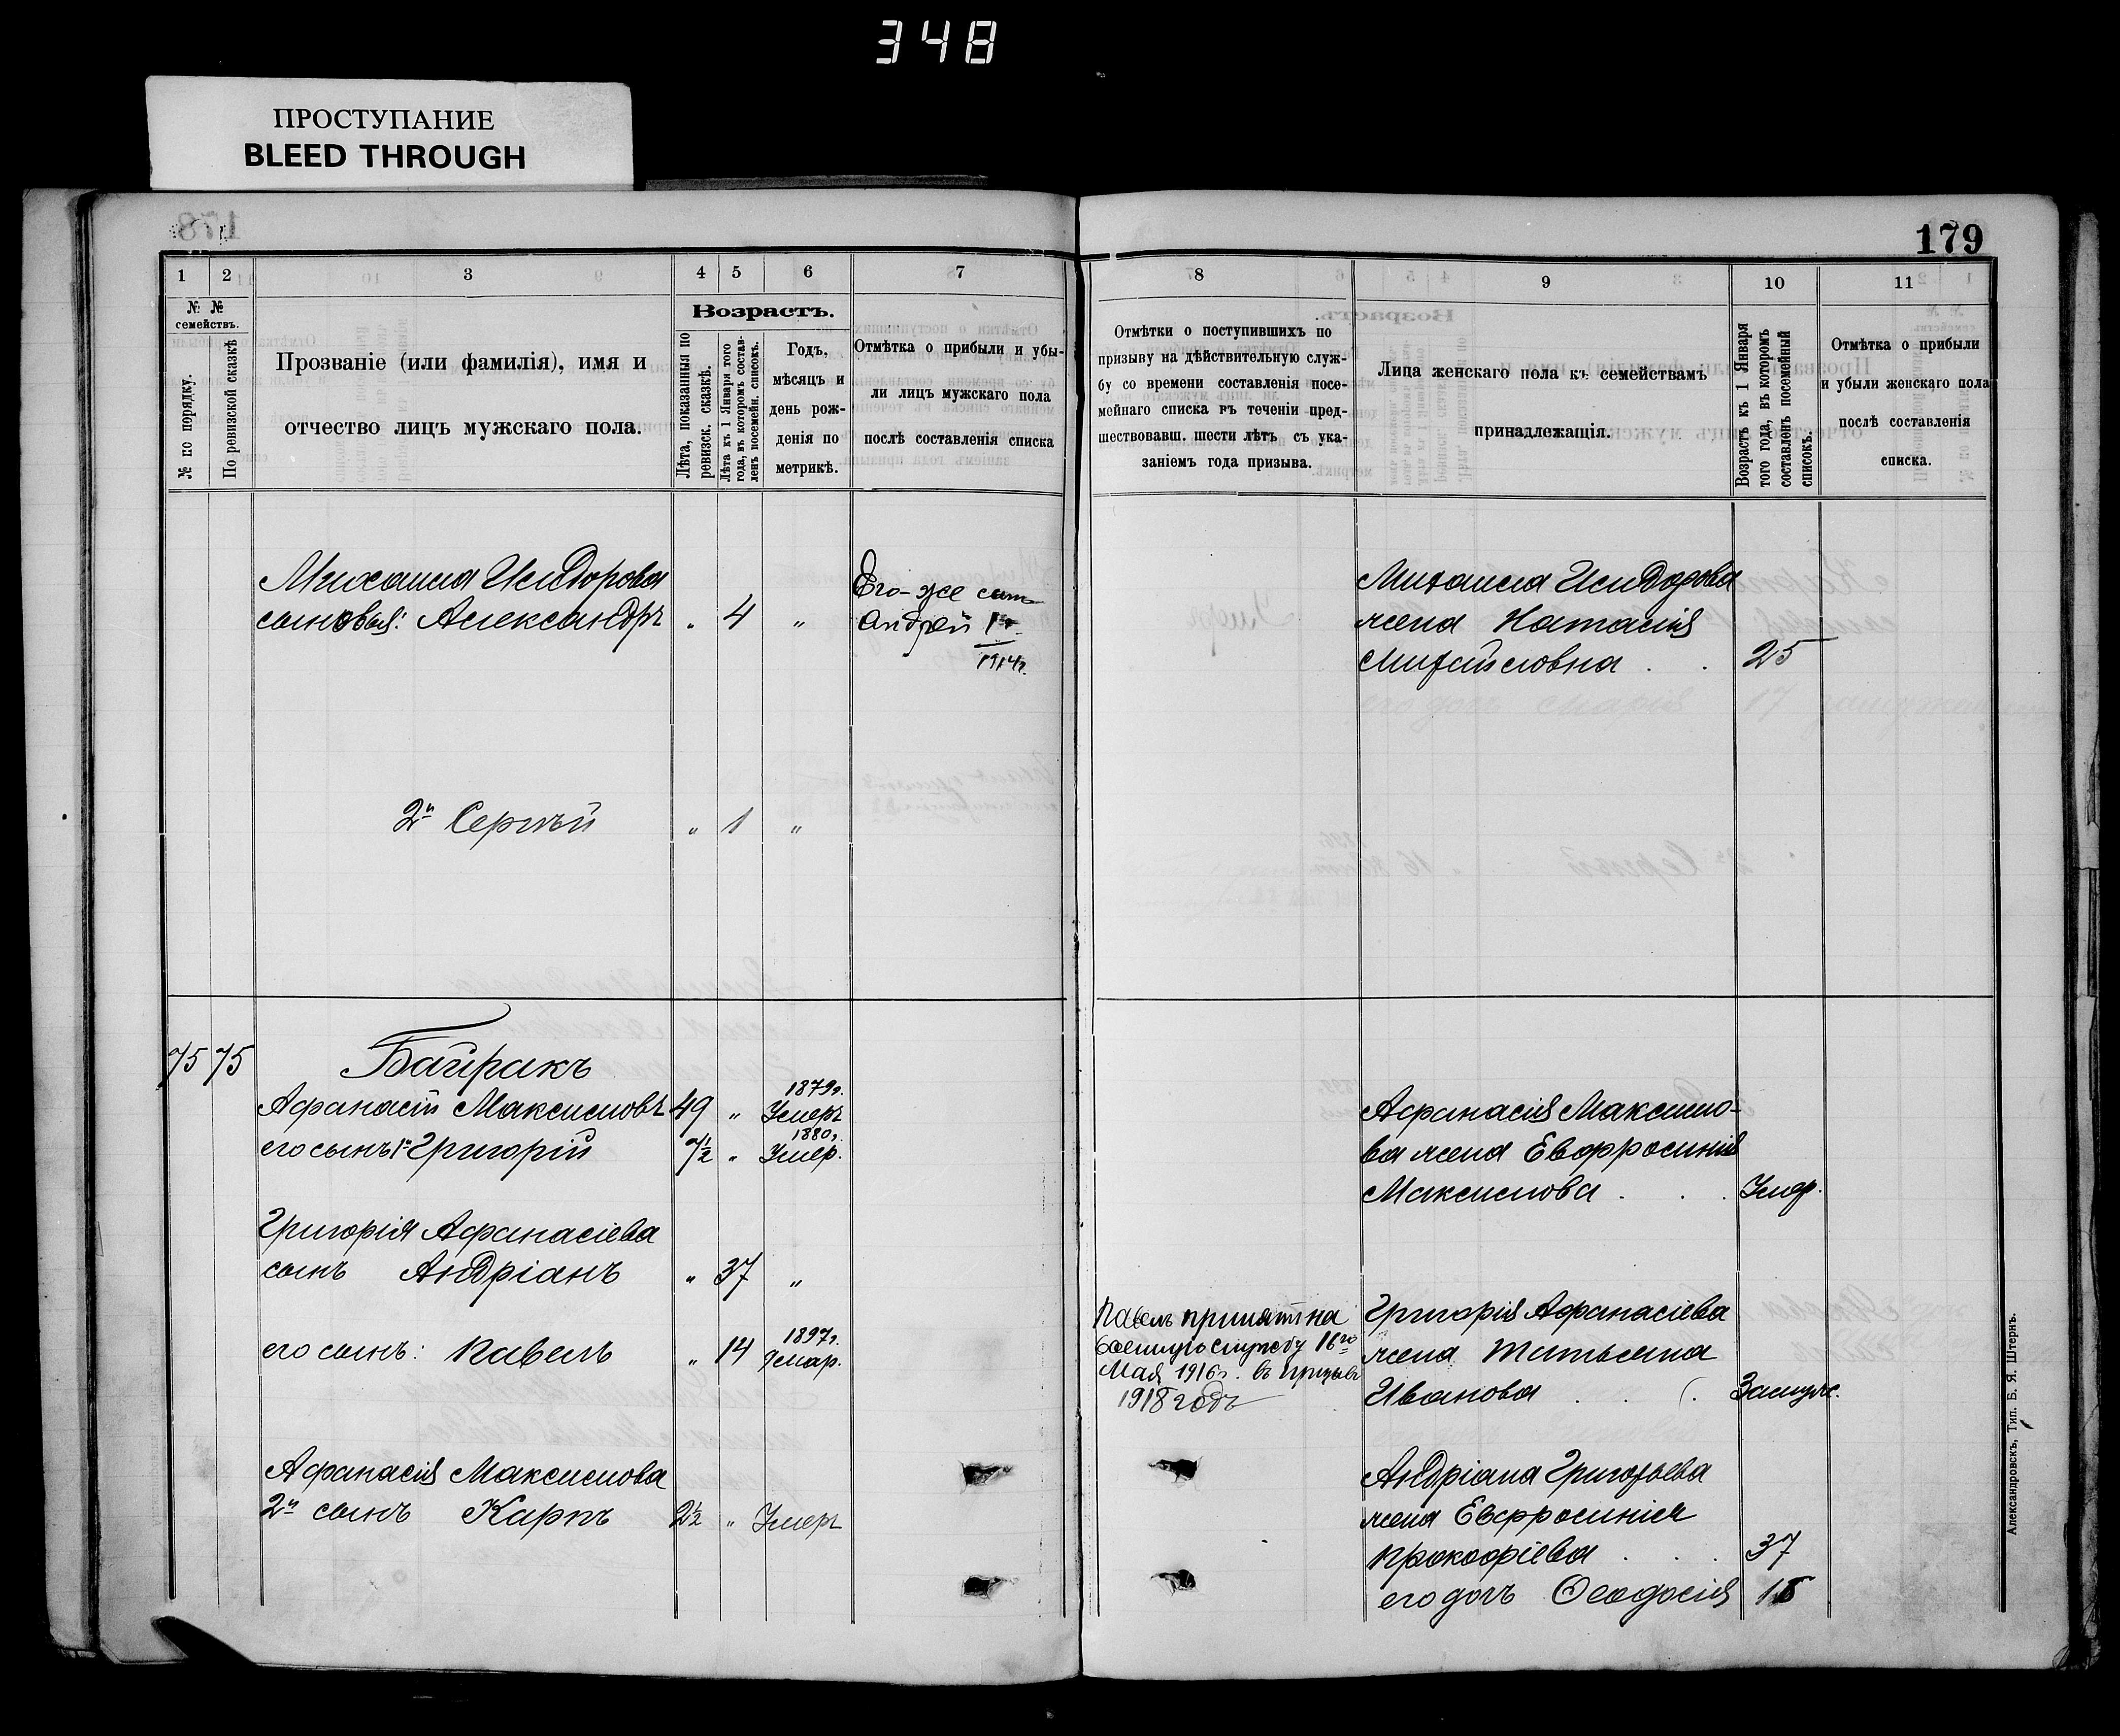 348
ПРОСТУПАНИЕ
BLEED THROUGH
178
1 2 3 4 5 6 7
№ № семействъ.
№ по порядку.
По ревизской сказкѣ
Прозваніе (или фамилія), имя и
отчество лицъ мужскаго пола.
Возрастъ.
Лѣта, показанныя по
ревизск. сказкѣ.
Лѣта къ 1 Января того
года, въ которомъ состав-
ленъ посемейн. списокъ.
Годъ,
мѣсяцъ и
день рож-
денія по
метрикѣ.
Отмѣтка о прибыли и убы-
ли лицъ мужскаго пола
послѣ составленія списка
Михаила Исидорова
сыновья: Александръ " 4 "
Его-же сынъ
Андрей
1914г.
2й Сергѣй " 1 "
75 75 Байракъ
1879г.
Афанасій Максимовъ 49 " Умеръ
1880г.
его сынъ 1й Григорій 7½ " Умер.
Григорія Афанасіева
сынъ Андріанъ " 37 "
1897г.
его сынъ: Павелъ " 14 Января.
Афанасія Максимова
2й сынъ Карпъ 2½ " Умеръ
179
8 9 10 11
Отмѣтки о поступившихъ по
призыву на дѣйствительную служ-
бу со времени составленія посе-
мейнаго списка въ теченіи пред-
шествовавш. шести лѣтъ съ ука-
заніемъ года призыва.
Лица женскаго пола къ семействамъ
принадлежащія.
Возрастъ къ 1 Января
того года, въ которомъ
составленъ посемейный
списокъ.
Отмѣтка о прибыли
и убыли женскаго пола
послѣ составленія
списка.
Михаила Исидорова
жена Наталія
Михайловна . . 25
Афанасія Максимо-
ва жена Евфросинія
Максимова . . . Умер.
Павелъ принятъ на
военную службу 16го
Мая 1916г. въ призывъ
1918 годъ
Григорія Афанасіева
жена Татьяна
Иванова . . . Замуж.
Андріана Григорьева
жена Евфросинія
Прокофіева . . . 37
его дочь Феодосія
Александровскъ, Тип. Б. Я. Штернъ.